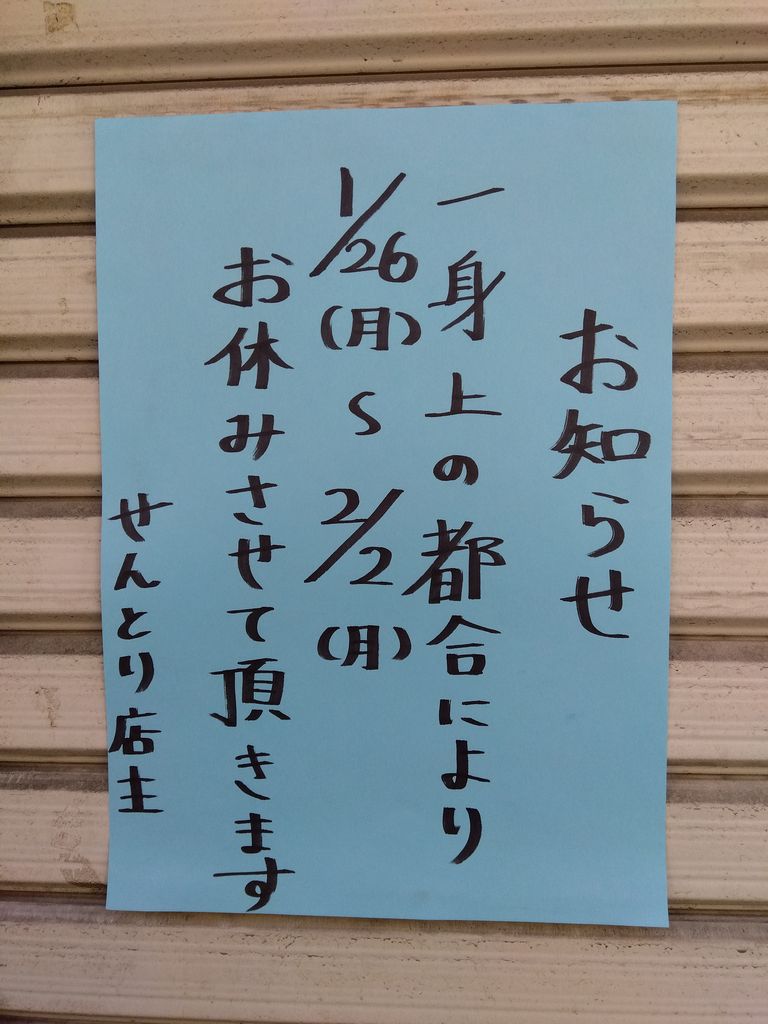 お知らせ
一身上の都合により
1/26(月)~2/2(月)
お休みさせて頂きます
せんとり店主